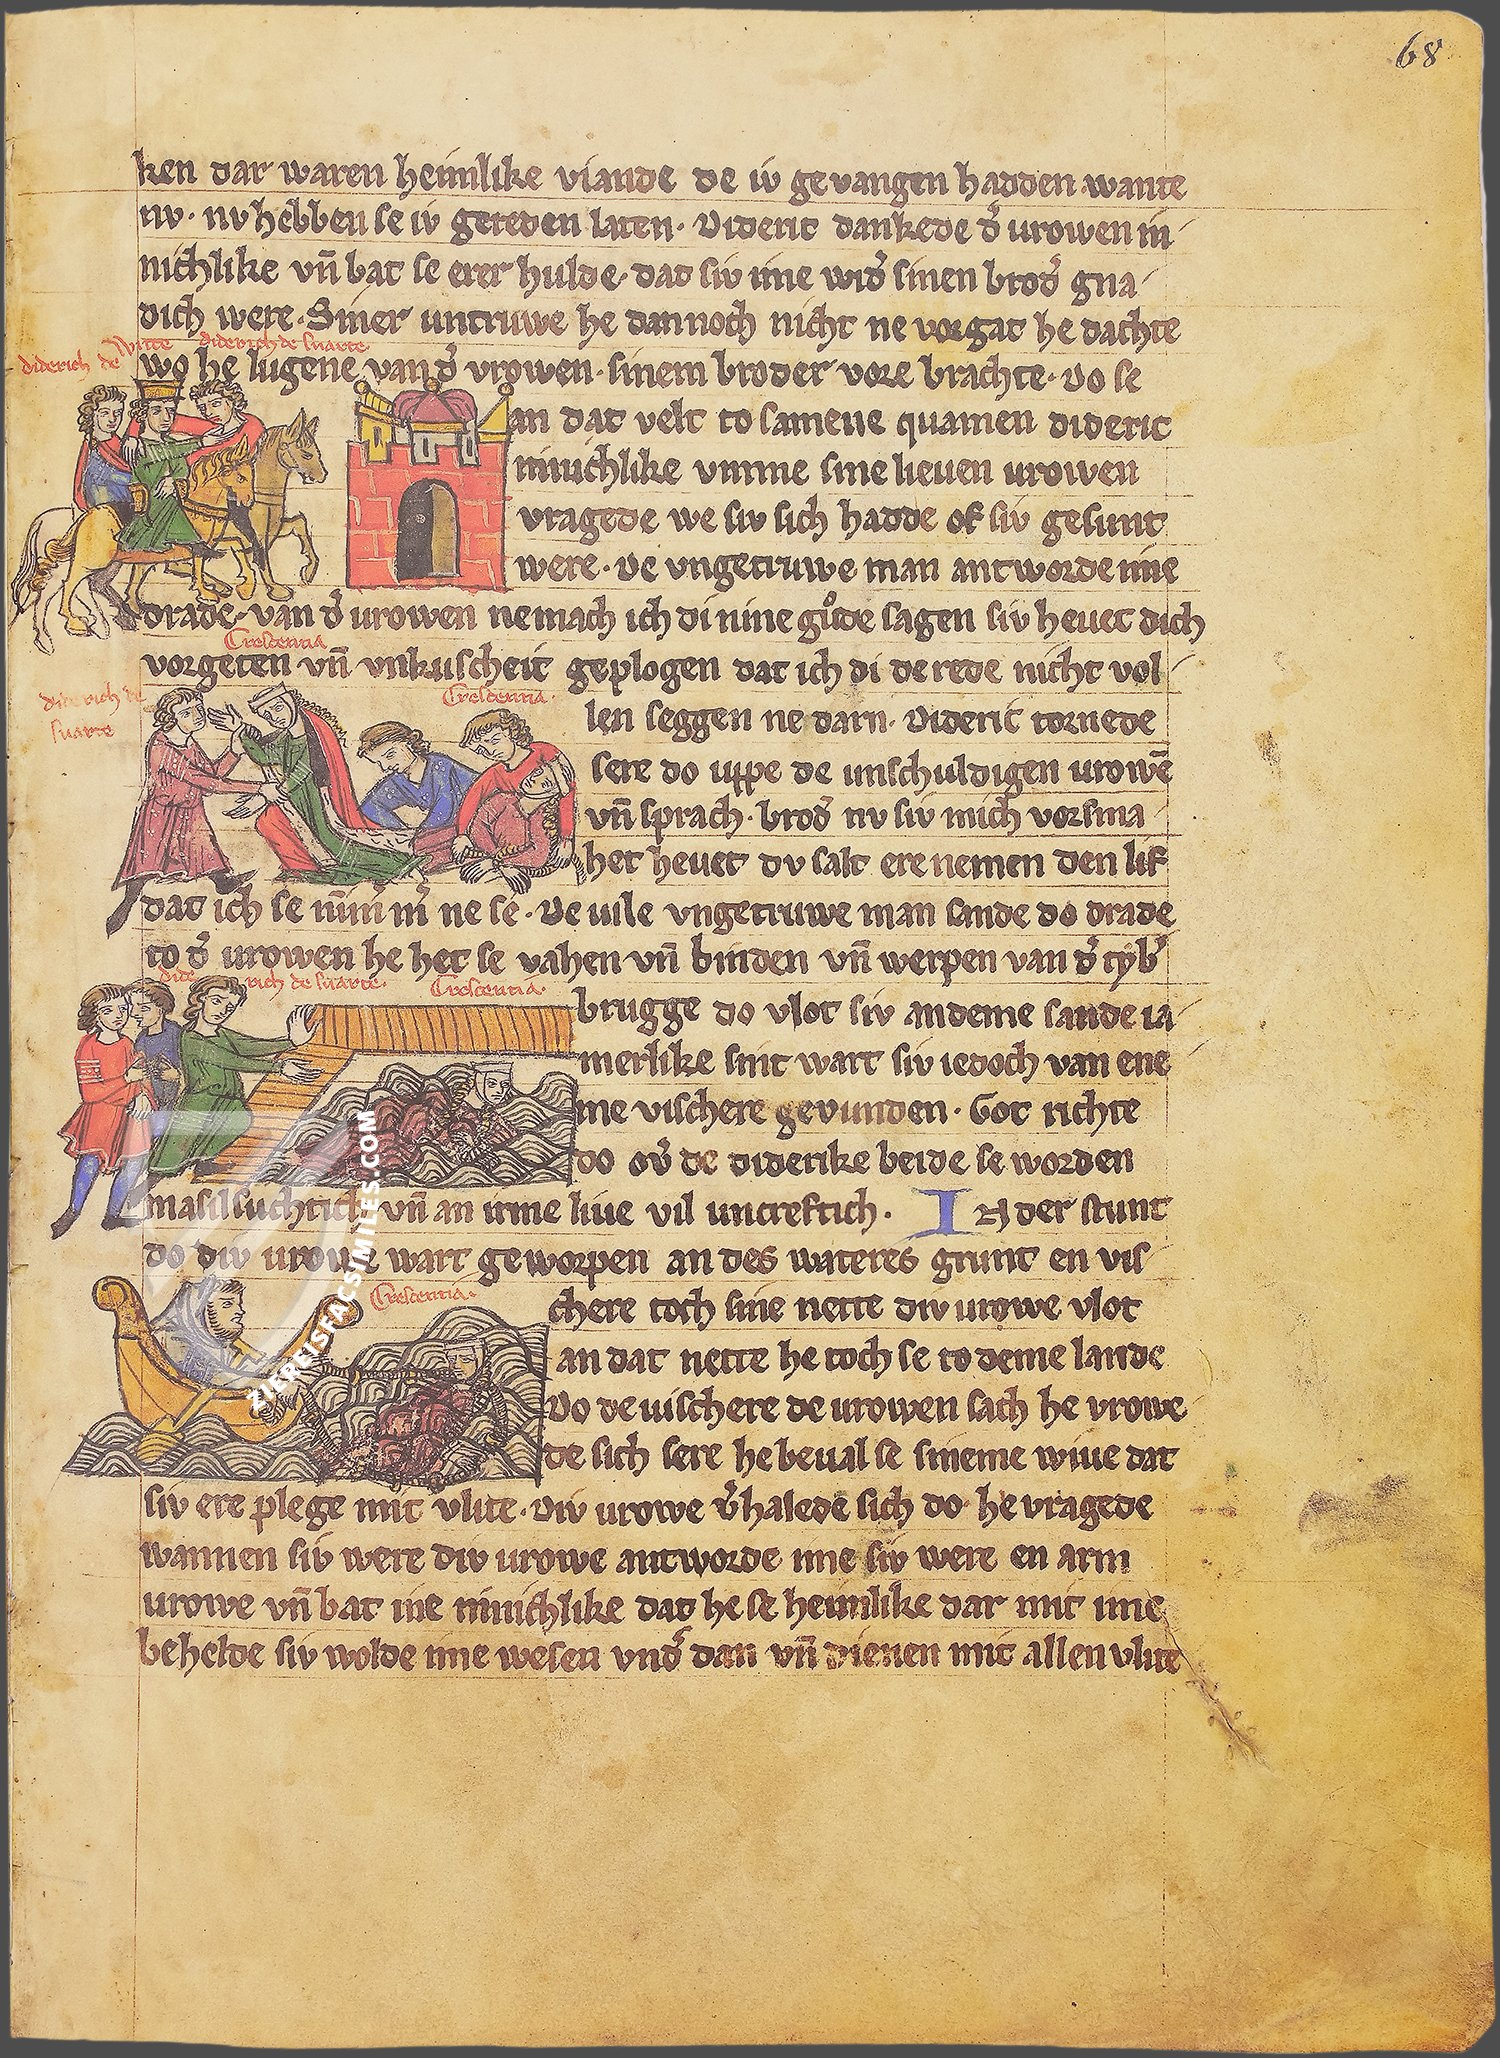 68
ken dar waren heimlike viande de iv gevangen hadden wante
nv · nv hebben se iv gereden laten · Dideric dankede d͛ urowen in
nichlike vn̄ bat se erer hulde · dat siv ime wid͛ sinen brod͛ gna
dich were · Siner untruwe he dannoch nicht ne vorgat he dachte
diderich de Witte diderich de suarte
wo he lugene van d͛ vrowen · sinem broder vore brachte · Do se
an dat velt to samene quamen dideric
minichlike vmme sine lieuen urowen
vragede we siv sich hadde of siv gesunt
were · De vngetruwe man antworde ime
drade · van d͛ urowen ne mach ich di nine gůde sagen siv heuet dich
Crescentia
vorgeten vn̄ vnkuscheit geplogen dat ich di de rede nicht vol
diderich de suarte
Crescentia
len seggen ne darn · Dideric tornede
sere do uppe de unschuldigen urowē
vn̄ sprach · brod͛ nv siv mich vorsma
het heuet dv salt ere nemen den lif
dat ich se nim̄m̄͛ ne se · De uile vngetruwe man sande do drade
to d͛ urowen he het se vahen vn̄ binden vn̄ werpen van d͛ tyb͛
diderich de suarte · Crescentia ·
brugge do vlot siv an deme sande ia
merlike sint wart siv iedoch van ene
me vischere gevunden · Got richte
do ov͛ de diderike beide se worden
masilsuchtich vn̄ an irme liue vil uncreftich · IN der stunt
do div urowe wart geworpen an des wateres grunt en vis
Crescentia ·
chere toch sine nette div urowe vlot
an dat nette he toch se to deme lande
Do de uischere de urowen sach he vrowe
de sich sere he beual se sineme wiue dat
siv ere plege mit vlite · Div urowe v͛halede sich do he vragede
wannen siv were div urowe antworde ime siv were en arm
urowe vn̄ bat ine minichlike dat he se heimlike dar mit ime
behelde siv wolde ime wesen vnd͛ dan vn̄ dienen mit allen vlite
ZIEREISFACSIMILES.COM